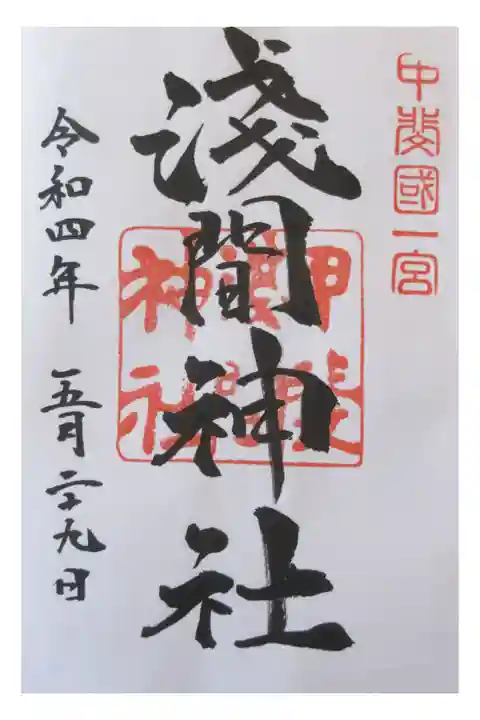 甲斐國一宮
淺間神社
甲斐
淺間
神社
令和四年 五月二十九日